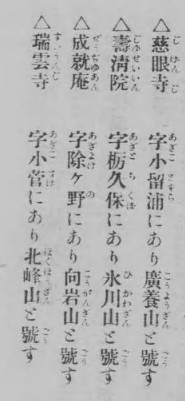 △慈眼寺 字小留浦にあり廣養山と號す
△壽淸院 字栃久保にあり氷川山と號す
△成就庵 字除ヶ野にあり向岩山と號す
△瑞雲寺 字小菅にあり北峰山と號す